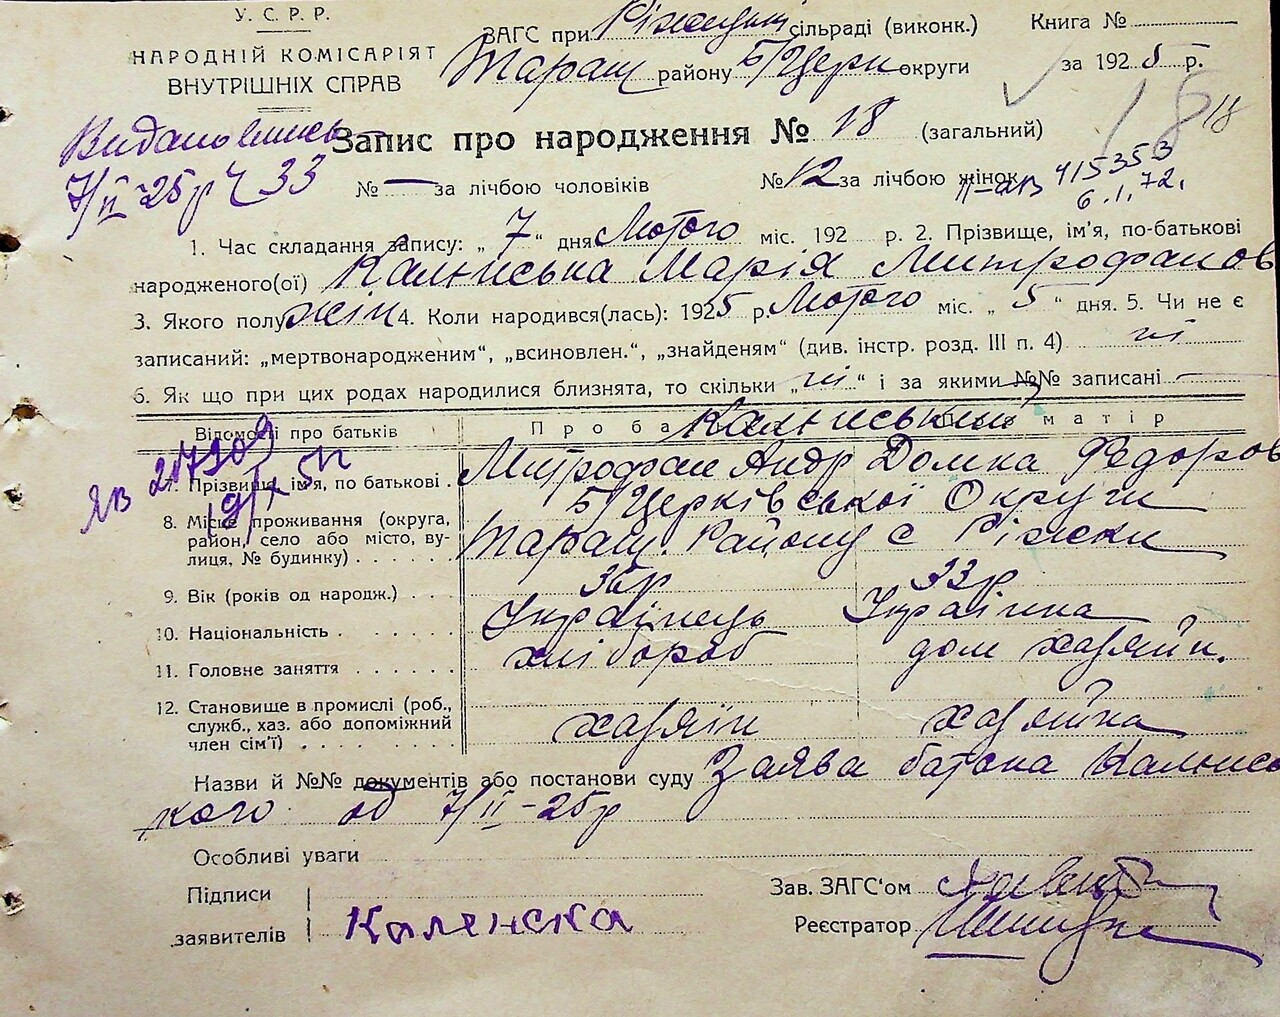 У. С. Р. Р.
НАРОДНІЙ КОМІСАРІЯТ
ВНУТРІШНІХ СПРАВ
ЗАГС при сільраді (виконк.)
Таращ району Б/Церк округи
Книга №
за 1925 р.
Запис про народження № 18 (загальний)
18
7/II-25р ч 33
№ — за лічбою чоловіків № 12 за лічбою жінок
415353
6.I.72.
1. Час складання запису: „ 7 “ дня Лютого міс. 192 р. 2. Прізвище, ім'я, по-батькові
народженого(ої) Кальниська Марія Митрофанов
3. Якого полу жін 4. Коли народився(лась): 1925 р. Лютого міс. „ 5 “ дня. 5. Чи не є
записаний: „мертвонародженим“, „всиновлен.“, „знайденям“ (див. інстр. розд. III п. 4) ні
6. Як що при цих родах народилися близнята, то скільки „ ні “ і за якими №№ записані —
Відомості про батьків Про ба матір
Кальниський
ЯВ 217909
7. Прізвище, ім'я, по батькові . Митрофан Андр Домка Федоров
8. Місце проживання (округа, район, село або місто, вулиця, № будинку) . . . . . Б/Церківської Округи
Таращ. Району с Ріжки
9. Вік (років од народж.) . . 36р 33р
10. Національність . . . . . Українець Українка
11. Головне заняття . . . . . хлібороб дом хазяйн.
12. Становище в промислі (роб., служб., хаз. або допоміжний член сім'ї) . . . . . . . хазяїн хазяйка
Назви й №№ документів або постанови суду Заява батька Кальнись
кого од 7/II-25р
Особливі уваги
Підписи
заявителів Каленска
Зав. ЗАГС'ом
Реєстратор